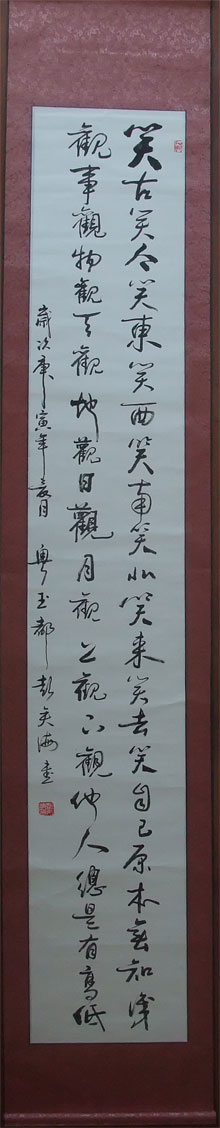 笑古笑今笑東笑西笑南笑北笑来笑去笑自己原本無知識
觀事觀物觀天觀地觀日觀月觀上觀下觀他人總是有高低
歲次庚寅年夏月粤玉都彭英海書